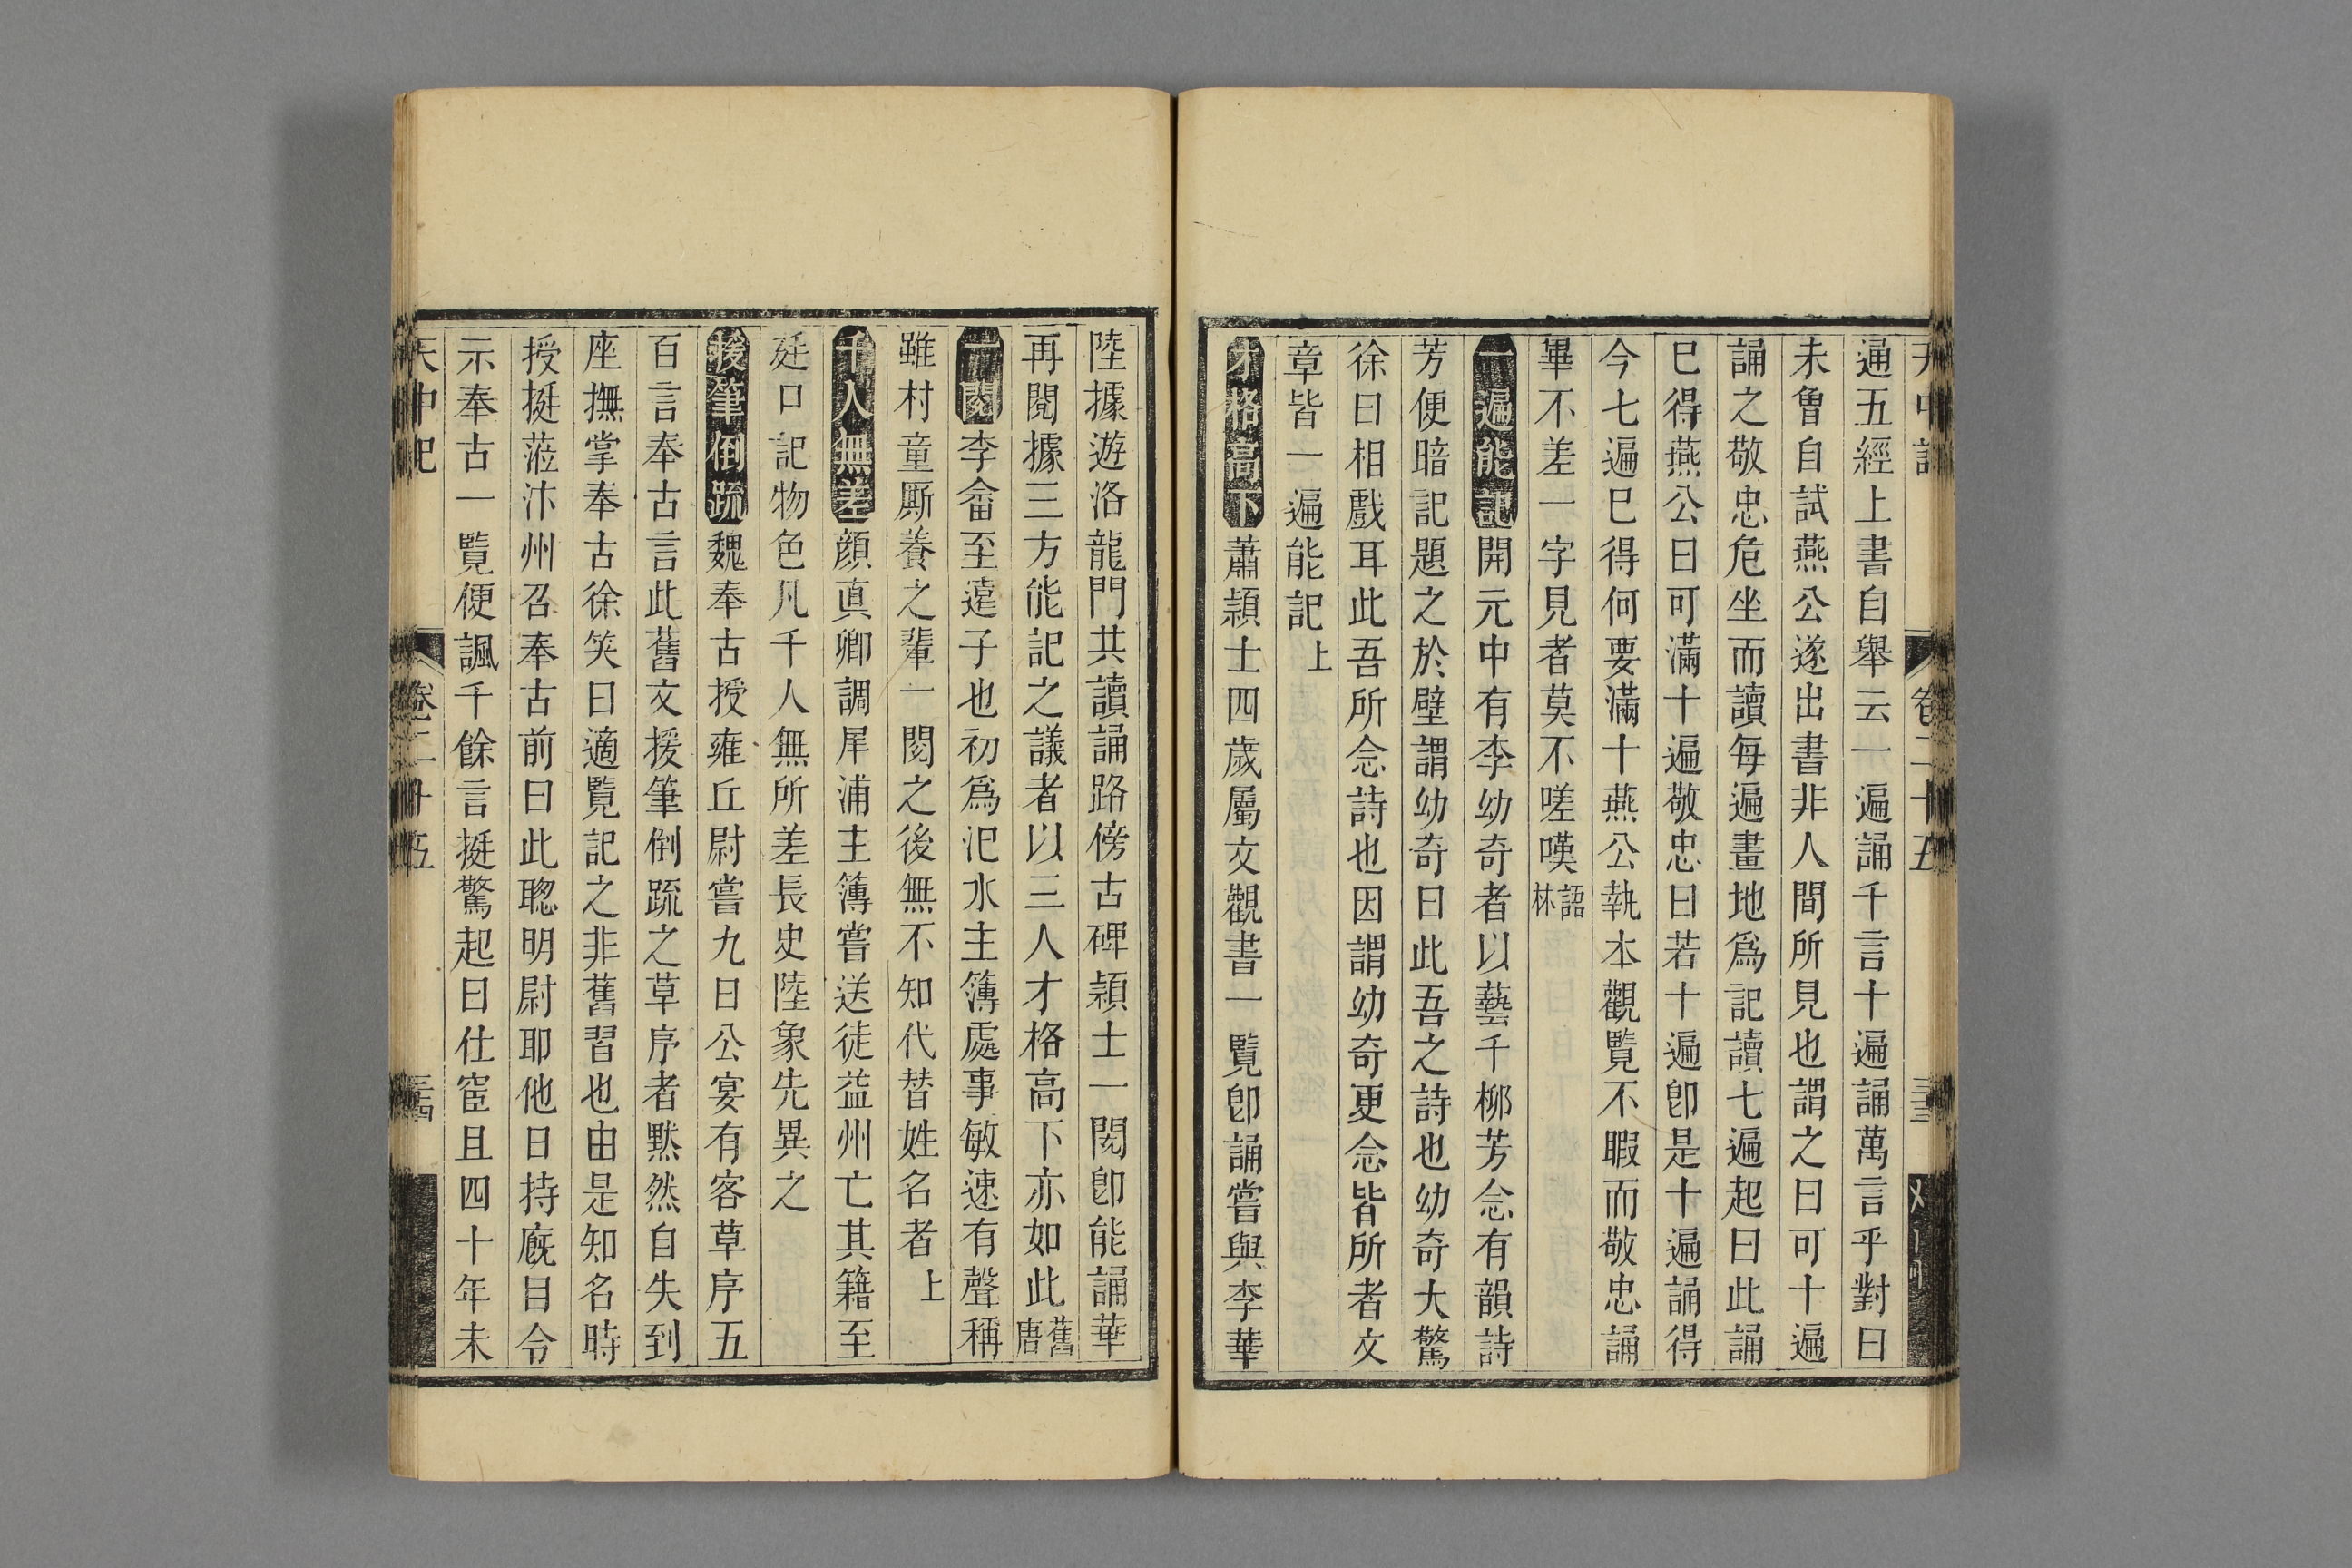 通五經上書自舉云一遍誦千言十遍誦萬言乎對曰
未曾自試燕公遂出書非人間所見也謂之曰可十遍
誦之敬忠危坐而讀每遍畫地爲記讀七遍起曰此誦
巳得燕公曰可滿十遍敬忠曰若十遍卽是十遍誦得
今七遍巳得何要滿十燕公執本觀覽不暇而敬忠誦
畢不差一字見者莫不嗟嘆語林
一遍能記開元中有李幼奇者以藝千柳芳念有韻詩
芳便暗記題之於壁謂幼奇曰此吾之詩也幼奇大驚
徐曰相戲耳此吾所念詩也因謂幼奇更念皆所者文
章皆一遍能記上
才格高下蕭頴士四歲屬文觀書一覽卽誦嘗與李華
陸據遊洛龍門共讀誦路傍古碑頴士一閱卽能誦華
再閱據三方能記之議者以三人才格高下亦如此舊唐
一閱李畬至遠子也初爲汜水主簿處事敏速有聲稱
雖村童厮養之輩一閱之後無不知代替姓名者上
千人無差顔真卿調犀浦主簿嘗送徒益州亡其籍至
廷口記物色凡千人無所差長史陸象先異之
援筆倒疏魏奉古授雍丘尉嘗九日公宴有客草序五
百言奉古言此舊文援筆倒疏之草序者黙然自失到
座撫掌奉古徐笑曰適覽記之非舊習也由是知名時
授挺蒞汴州召奉古前曰此聦明尉耶他日持廐目令
示奉古一覽便諷千餘言挺驚起曰仕宦且四十年未
天中記 卷二十五 三十四